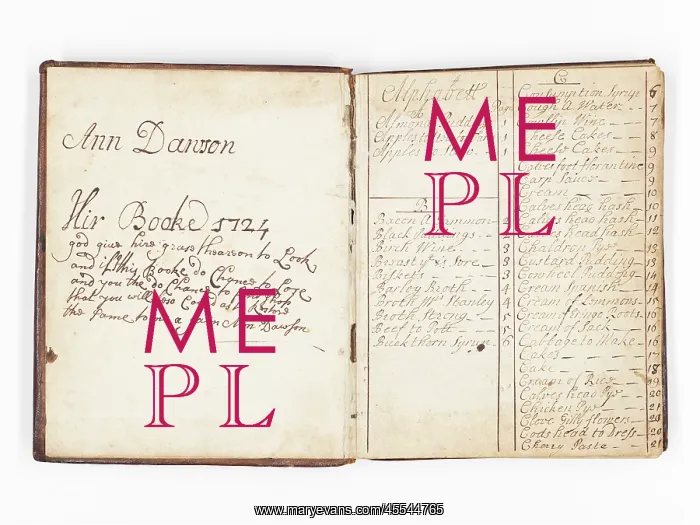 Ann Dawson
Hir Booke 1724
god give hir grase thearon to Look
and if this Booke do Chance to Lose
and you the do Chance to
that you will
the same to Ann Dawson
Alphabett
Page
Almond Pudding 1
Apples 1
Apples to 1
B
Bacon A Gammon 2
Black Puddings
Birch Wine 3
Breast 3
Biskets 3
Barley Broth 4
Broth Mrs Stanley 4
Broth Strong 5
Beef to Pott 5
Buckthorn Syrup 6
C
Consumption Syrup 6
Cough A Water 7
Cowslip Wine 7
Cheese Cakes 8
Cheese Cakes 9
Calves foot florantine 9
Carp Sauce 9
Cream 10
Calves head hash 10
Calves head hash 11
Calves head hash 12
Chaldron Pye 13
Custard Pudding 13
Cowheel Pudding 14
Cream Spanish 14
Cream of Lemmons 15
Cream of Eringo Roots 16
Cream of Sack 16
Cabbage to Make 16
Cakes 17
Cake 18
Cream of Rice 19
Calves head Pye 20
Chicken Pye 21
Clove Gilly flowers 20
Cods head to Dress 20
Chang Paste 21
ME
PL
ME
PL
www.maryevans.com/45544765